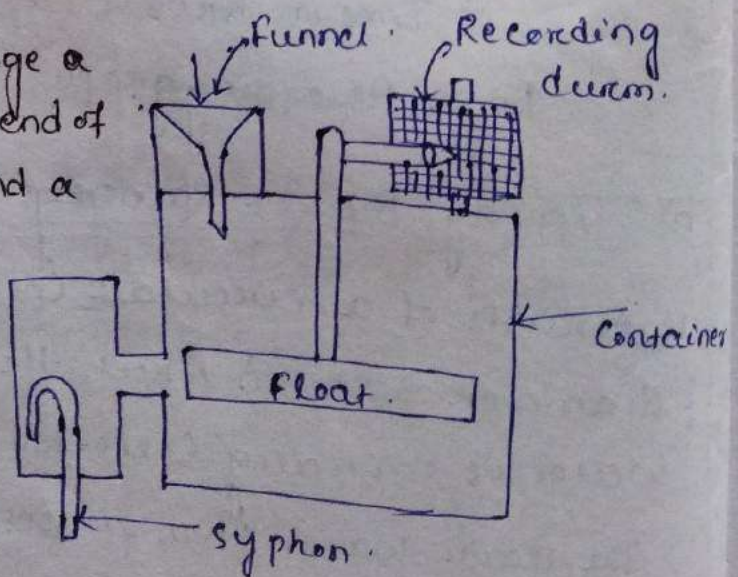 ge a
end of
nd a
Funnel.
Recording
durm.
Container
Float.
Syphon.